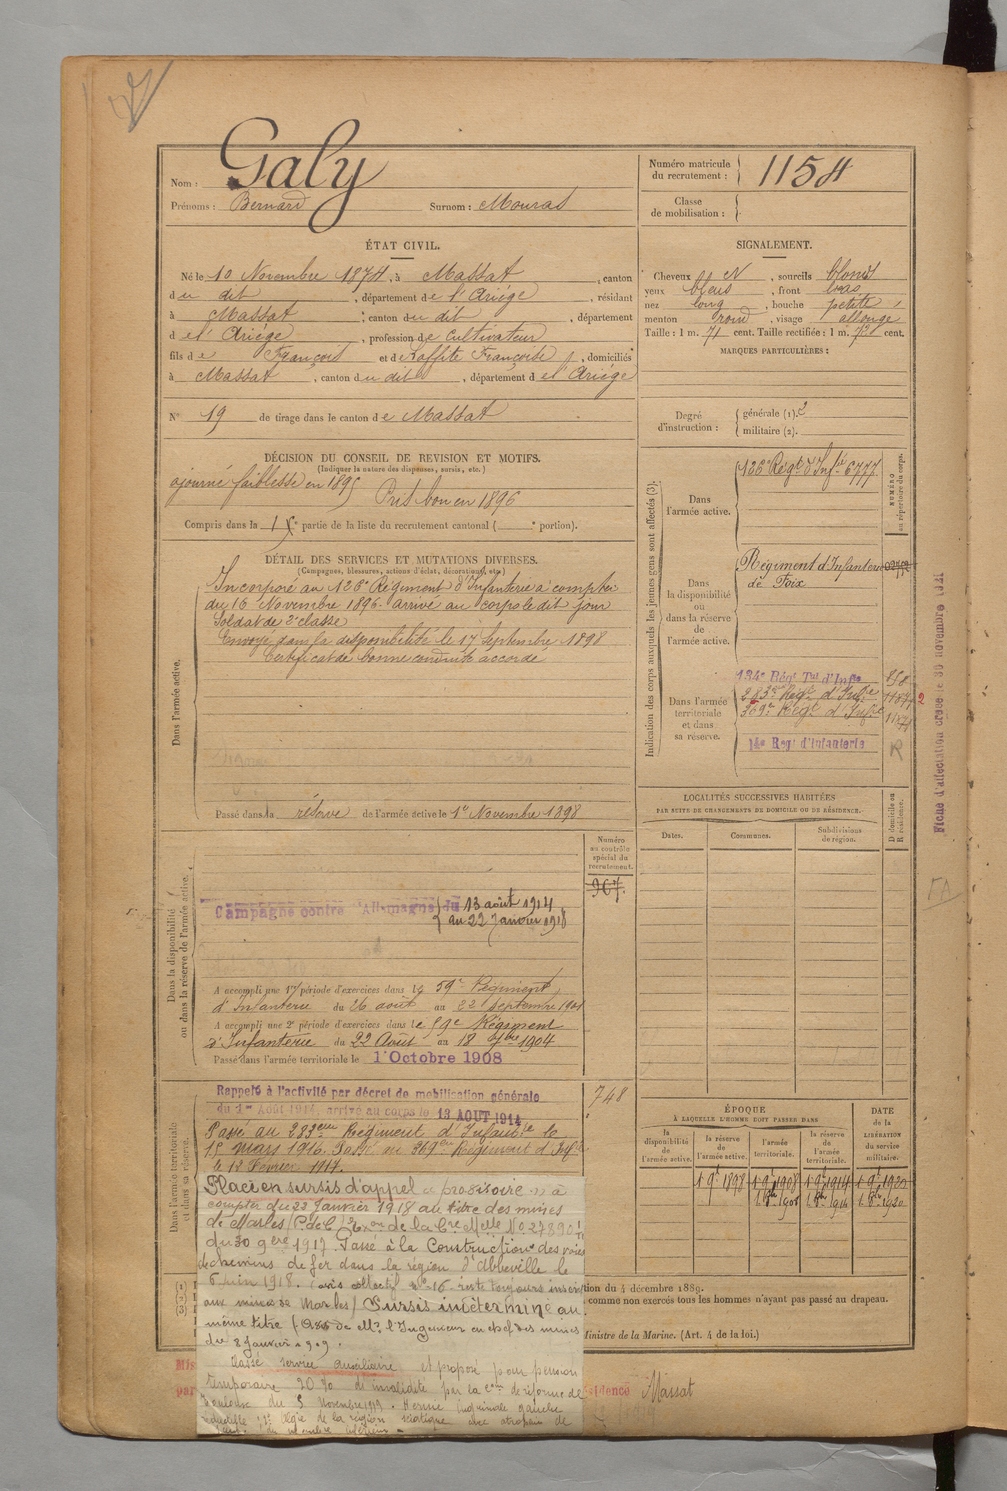 Nom : Galy
Prénoms : Bernard Surnom : Mouras
Numéro matricule
du recrutement : 1154
Classe
de mobilisation :
ÉTAT CIVIL.
Né le 10 Novembre 1874, à Massat, canton
du dit, département de l'Ariège, résidant
à Massat, canton du dit, département
d el' Ariège, profession de Cultivateur
fils de François et de Laffite Françoise, domiciliés
à Massat, canton du dit, département d el' Ariège
N° 19 de tirage dans le canton de Massat
SIGNALEMENT.
Cheveux N, sourcils blonds
yeux bleus, front bas
nez long, bouche petite
menton rond, visage allongé
Taille : 1 m. 71 cent. Taille rectifiée : 1 m. 73 cent.
MARQUES PARTICULIÈRES :
Degré
d'instruction :
générale (1). 2
militaire (2).
DÉCISION DU CONSEIL DE REVISION ET MOTIFS.
(Indiquer la nature des dispenses, sursis, etc.)
ajourné faiblesse en 1895
Pris bon en 1896
Compris dans la 1re partie de la liste du recrutement cantonal ( portion).
DÉTAIL DES SERVICES ET MUTATIONS DIVERSES.
(Campagnes, blessures, actions d'éclat, décorations, etc.)
Dans l'armée active.
Incorporé au 126e Régiment d'Infanterie à compter
du 16 Novembre 1896. arrivé au corps le dit jour
Soldat de 2e classe
Envoyé dans la disponibilité le 17 Septembre 1898
Certificat de bonne conduite accordé
Passé dans la réserve de l'armée active le 1er Novembre 1898
Indication des corps auxquels les jeunes gens sont affectés (3).
NUMÉRO
au répertoire du corps.
Dans
l'armée active.
126e Régt d'Infie 6777
Dans
la disponibilité
ou
dans la réserve
de
l'armée active.
Régiment d'Infanterie
de Foix
Dans l'armée
territoriale
et dans
sa réserve.
134e Régt Tal d'Infie
283e Régt d'Infie
369e Régt d'Infie
14e Regt d'Infanterie
R
Fiche d'affectation créée le 30 novembre 1921
LOCALITÉS SUCCESSIVES HABITÉES
PAR SUITE DE CHANGEMENTS DE DOMICILE OU DE RÉSIDENCE.
Dates.
Communes.
Subdivisions
de région.
D domicile ou
R résidence.
Dans la disponibilité
ou dans la réserve de l'armée active.
Numéro
au contrôle
spécial du
recrutement.
967
Campagne contre l'Allemagne du 13 août 1914
au 22 Janvier 1918
A accompli une 1re période d'exercices dans le 59e Régiment
d'Infanterie du 26 août au 22 Septembre 1901
A accompli une 2e période d'exercices dans le 59e Régiment
d'Infanterie du 22 Août au 18 7bre 1904
Passé dans l'armée territoriale le 1er Octobre 1908
Dans l'armée territoriale
et dans sa réserve.
748
Rappelé à l'activité par décret de mobilisation générale
du 1er Août 1914, arrivé au corps le 13 AOUT 1914
Passé au 283eme Régiment d'Infantie le
15 mars 1916. Passé au 369eme Régiment d'Infie
le 12 Février 1917.
Placé en sursis d'appel provisoire à
compter du 22 Janvier 1918 au titre des mines
de Marles (P. de C.) de la Cre Melle No 27890
du 30 9bre 1917. Passé à la Construction des voies
de chemins de fer dans la région d'Abbeville le
6 Juin 1918. (avis collectif No 16. reste toujours inscrit
aux mines de Marles) Sursis indéterminé au
même titre de Mr l'Ingénieur en chef des mines
du 8 Janvier 1919.
Classé service auxiliaire et proposé pour pension
temporaire 20 % d'invalidité par la Con de réforme de
Toulouse du 5 Novembre 1919. Hernie inguinale gauche
réductible 2° Algie de la région sciatique avec atrophie de
ÉPOQUE
À LAQUELLE L'HOMME DOIT PASSER DANS
la
disponibilité
de
l'armée active.
la réserve
de
l'armée active.
l'armée
territoriale.
la réserve
de
l'armée
territoriale.
DATE
de la
LIBÉRATION
du service
militaire.
1 9bre 1898
1 9bre 1908
1 9bre 1914
1 9bre 1920
1 8bre 1908
1 8bre 1914
1 8bre 1920
(1)
(2)
(3)
tion du 4 décembre 1889.
comme non exercés tous les hommes n'ayant pas passé au drapeau.
Ministre de la Marine. (Art. 4 de la loi.)
sidence Massat